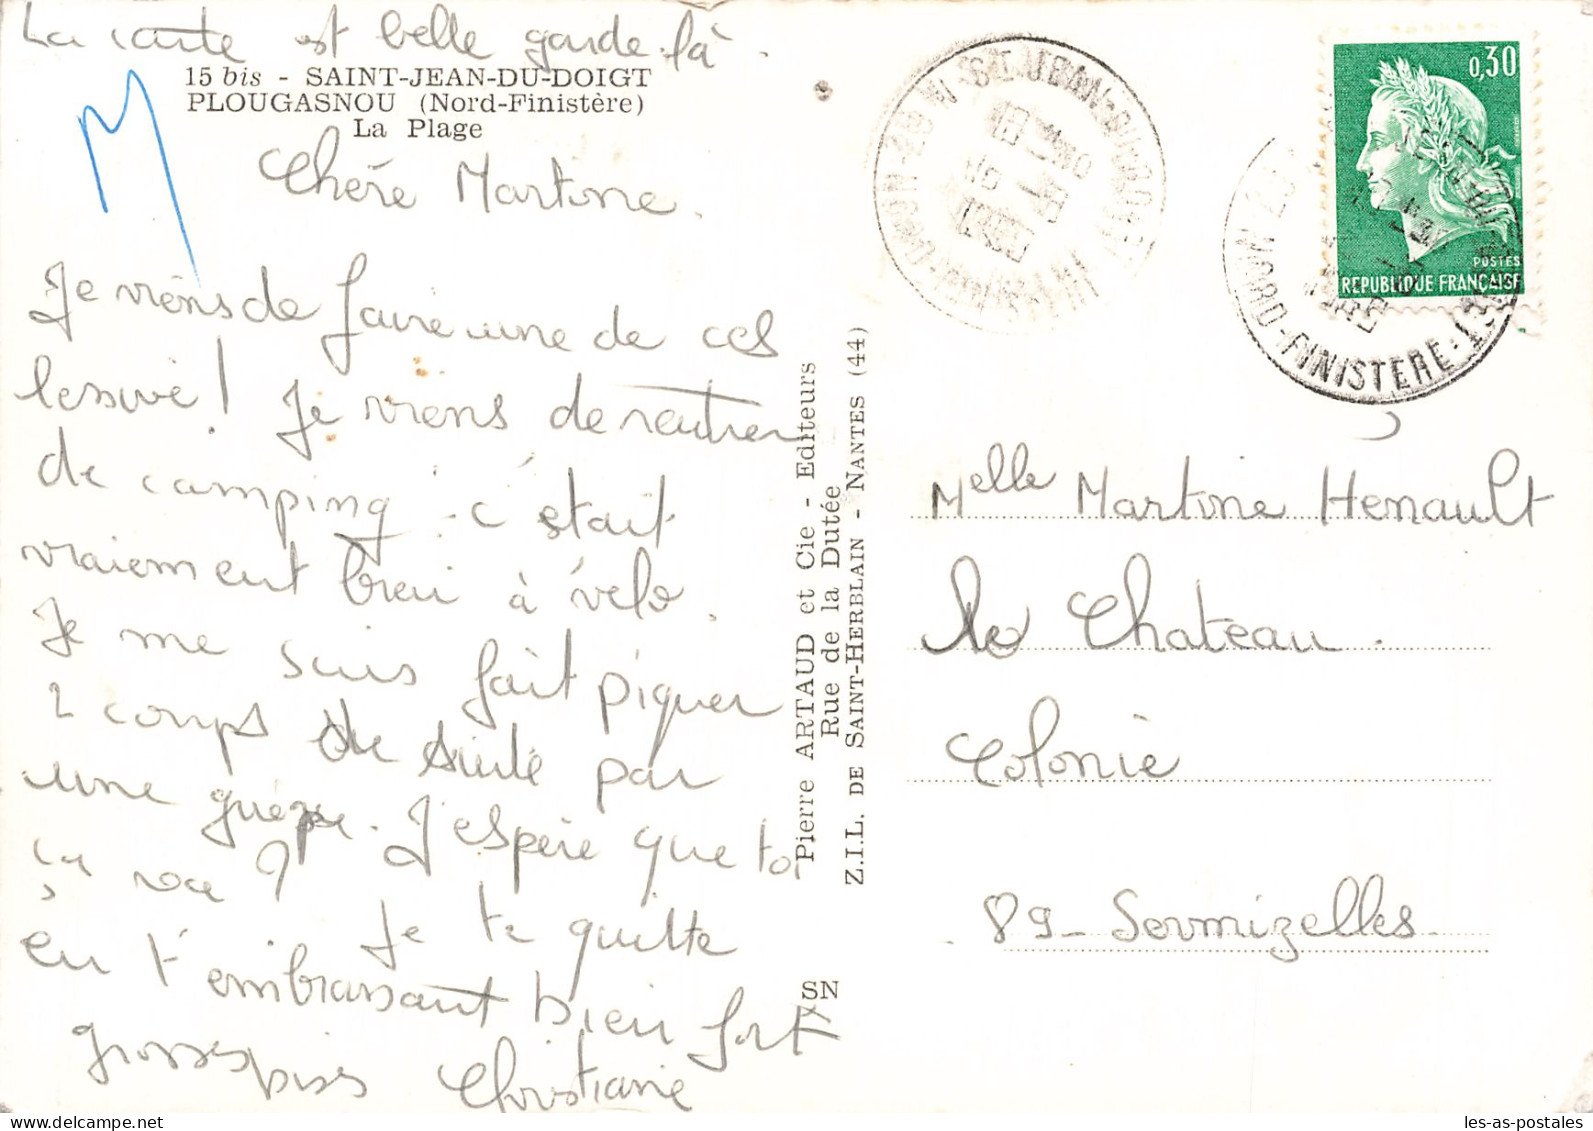 La carte est belle garde-là.
15 bis - SAINT-JEAN-DU-DOIGT
PLOUGASNOU (Nord-Finistère)
La Plage
M
Chére Martine.
Je viens de faire une de ces
lessive! Je viens de rentrer
de camping c'était
vraiement bien à vélo.
Je me suis fait piquer
2 coups de suite par
une guêpe. J'espère que toi
ça va? Je te quitte
en t'embrassant bien fort
grosses bises Christiane
Pierre ARTAUD et Cie - Editeurs
Rue de la Dutée
Z.I.L. DE SAINT-HERBLAIN - NANTES (44)
SN
0,30
POSTES
REPUBLIQUE FRANÇAISE
NORD-FINISTERE
Melle Martine Henault
le Chateau.
Colonie
89 - Sermizelles
les-as-postales